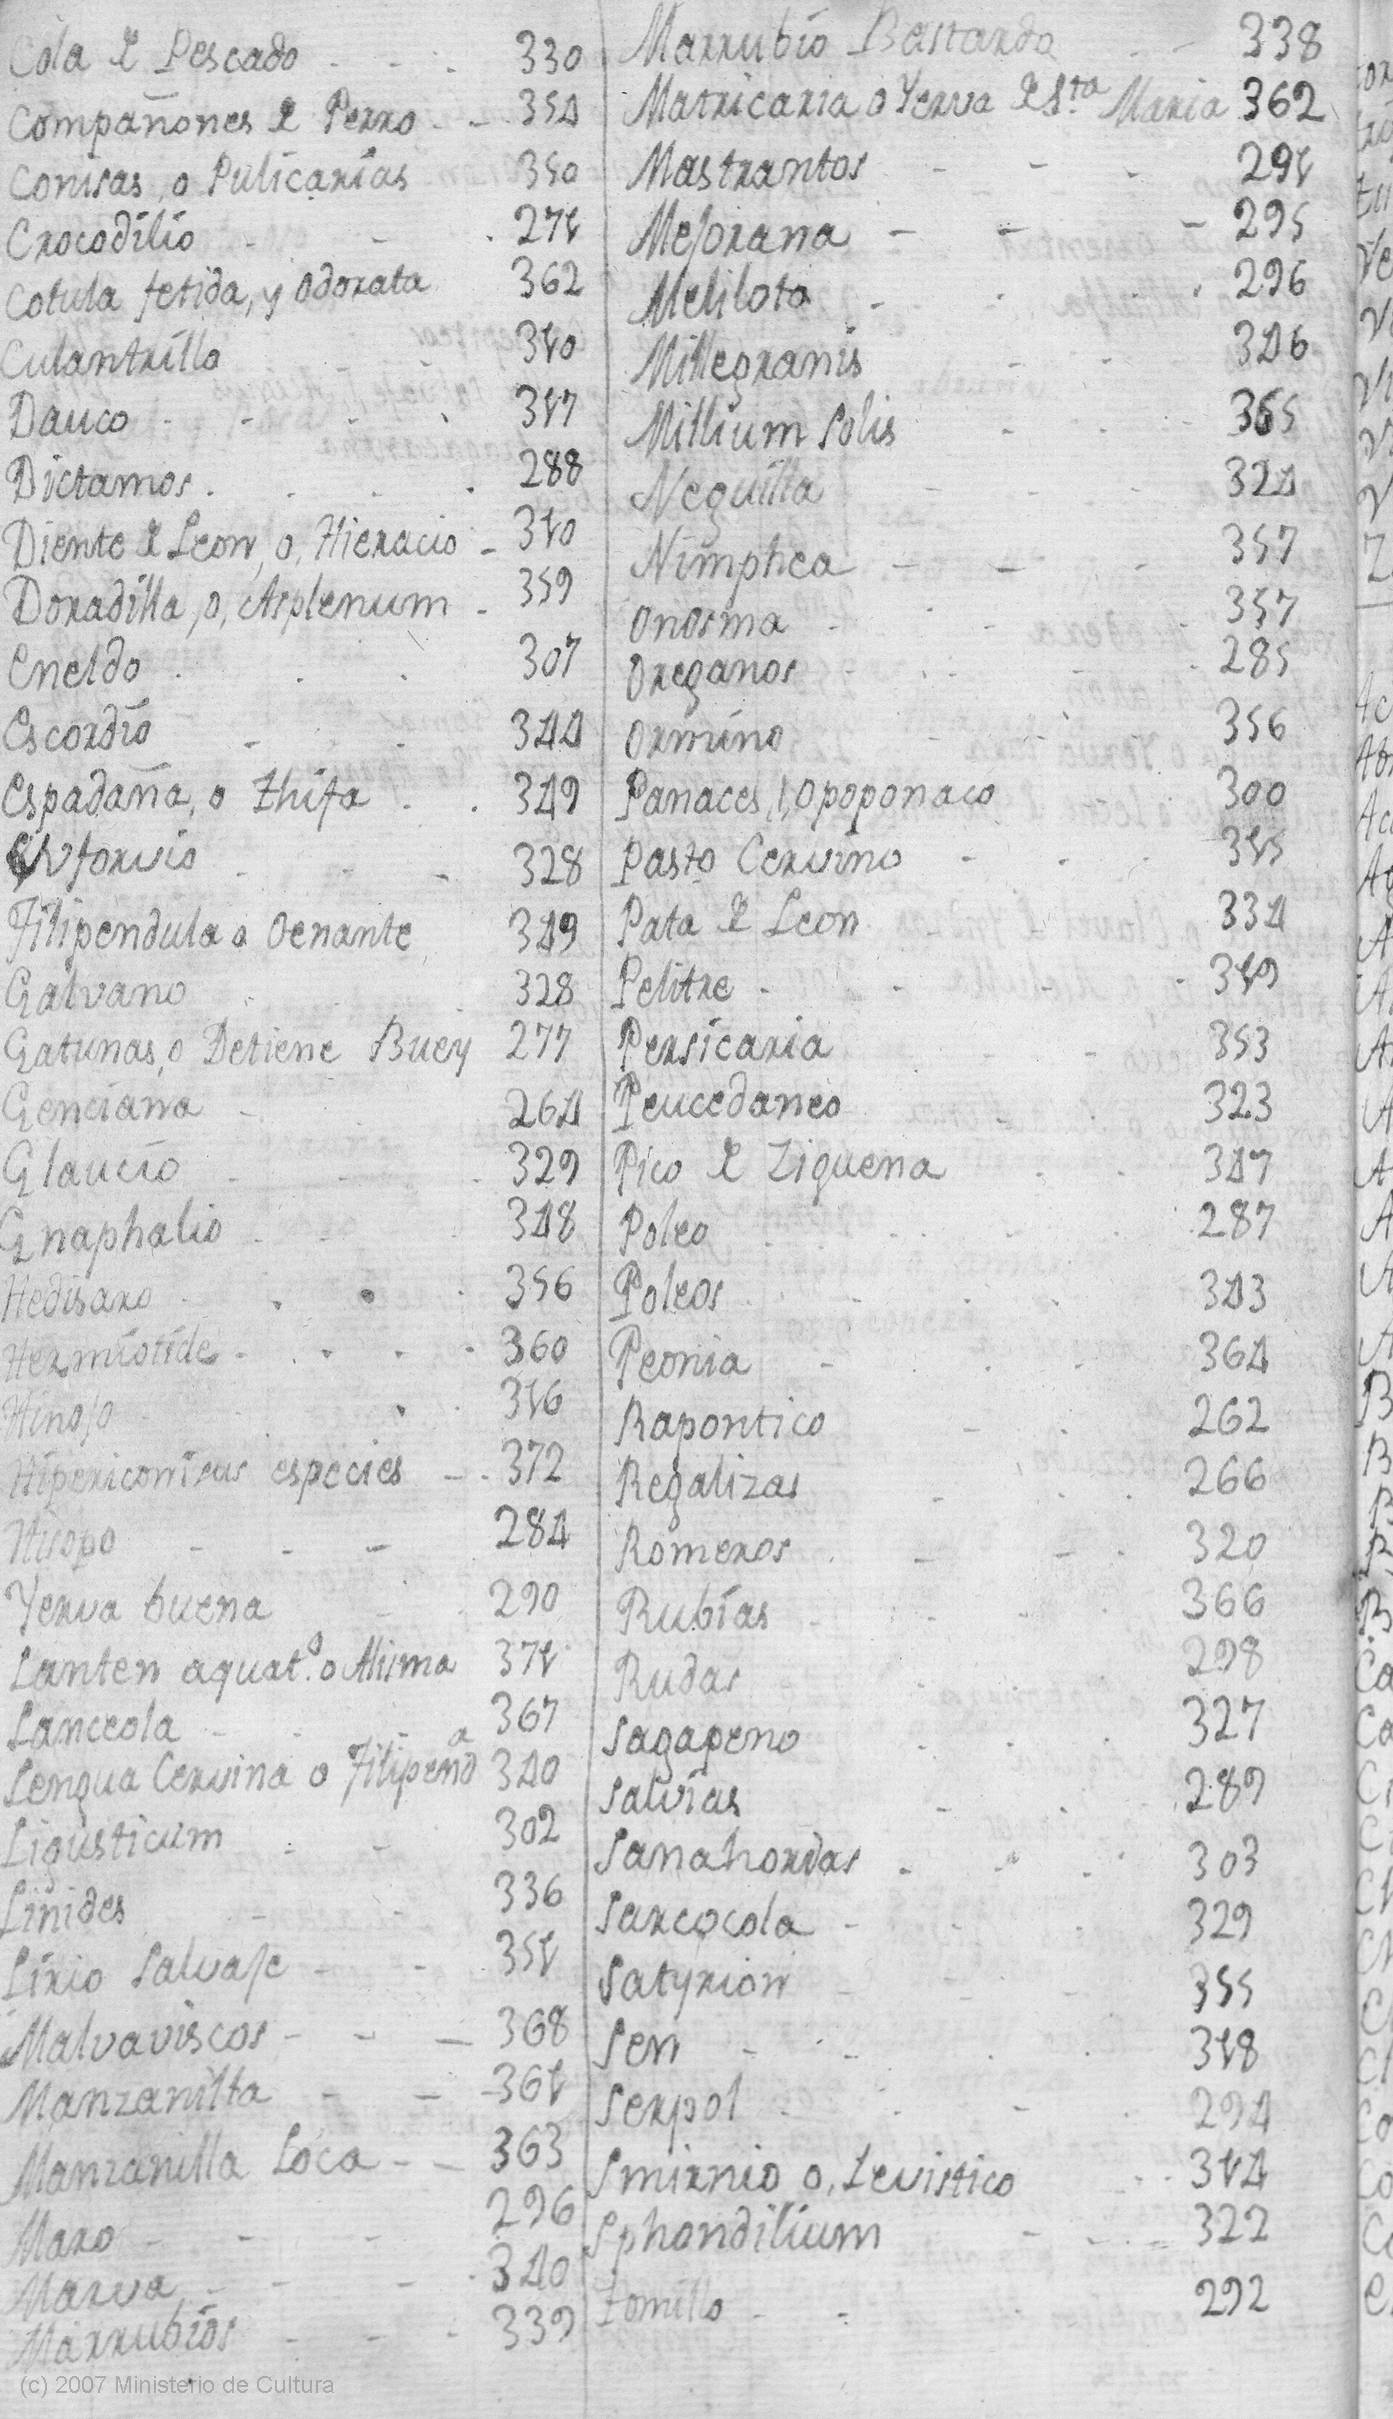 Cola de Pescado 330
Compañones de Perro 354
Conisas, o Pulicarias 350
Crocodilio 271
Cotula fetida, y odorata 362
Culantrillo 310
Dauco 317
Dictamos 288
Diente de Leon, o, Hieracio 310
Doradilla, o, Asplenum 359
Eneldo 307
Escordio 344
Espadaña, o thifa 349
Euforvio 328
Filipendula o Oenante 349
Galvano 328
Gatunas, o Detiene Buey 277
Genciana 264
Glaucio 329
Gnaphalio 348
Hedisaro 356
Hermiotide 360
Hinojo 316
Hipericonisus especies 372
Hisopo 284
Yerva buena 290
Lanten aquat.º o Alisma 371
Lanceola 367
Lengua Cervina o Filipendª 340
Ligusticum 302
Linides 336
Lirio Salvaje 351
Malvaviscos 368
Manzanilla 361
Manzanilla Loca 363
Maro 296
Marva 340
Marrubios 339
Marrubio Bastardo 338
Matricaria o Yerva de Sta Maria 362
Mastrantos 291
Mejorana 295
Meliloto 296
Millegranis 346
Millium Solis 365
Neguilla 324
Nimphea 357
Onosma 357
Oreganos 285
Ormino 356
Panaces, l, Opoponaco 300
Pasto Cervino 315
Pata de Leon 334
Pelitre 319
Persicaria 353
Peucedaneo 323
Pico de Ziguena 347
Poleo 287
Poleos 343
Peonia 364
Rapontico 262
Regalizas 266
Romeros 320
Rubias 366
Rudas 298
Sagapeno 327
Salvias 289
Sanahorias 303
Sarcocola 329
Satyrion 355
Sen 318
Serpol 294
Smirnio o, Levistico 314
Sphondilium 322
Tomillo 292
(c) 2007 Ministerio de Cultura